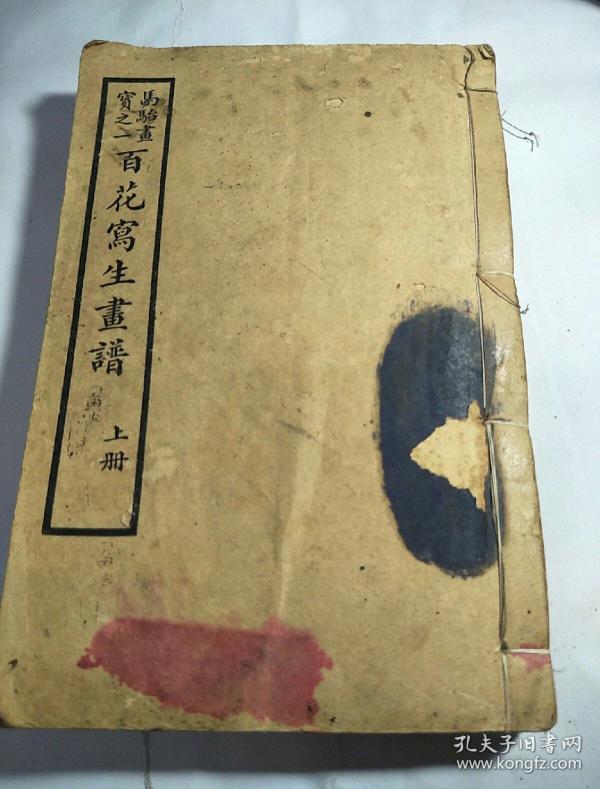 馬駘畫
寳之一
百花寫生畫譜
上册
孔夫子旧書网
www.kongfz.com